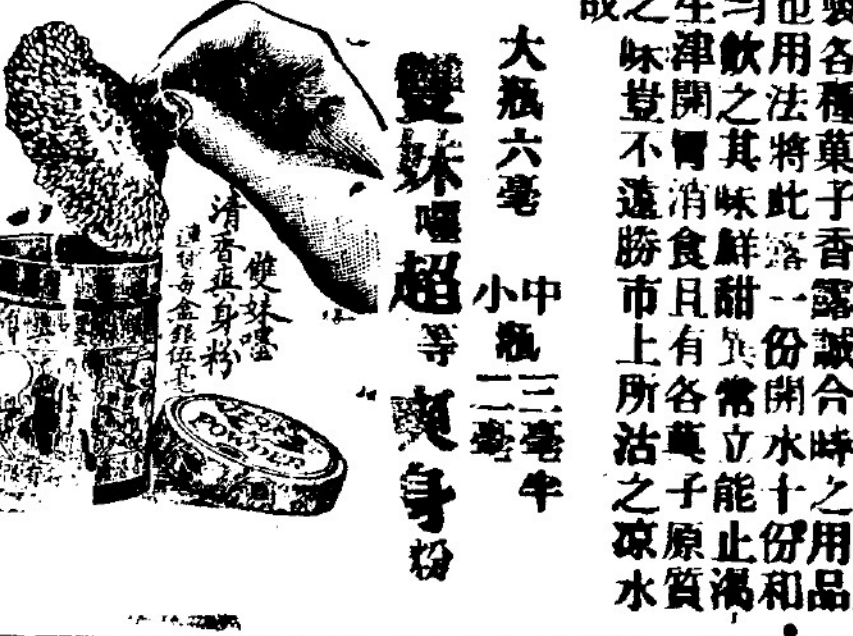 製各種菓子香露誠合時之用品
也用法將此露一份開水十份和
勻飲之其味鮮甜異常立能止渴
生津開胃消食且有各菓子原質
之味豈不遠勝市上所沽之凉水
哉
大瓶六毫 中小瓶三毫半二毫
雙妹嚜超等爽身粉
雙妹嚜
清香爽身粉
每盒銀伍毫
POWDER